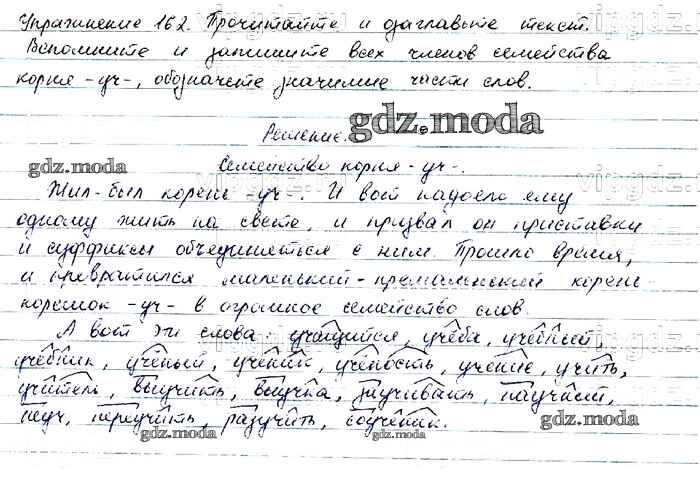 Упражнение 162. Прочитайте и озаглавьте текст.
Вспомните и запишите всех членов семейства
корня -уч-, обозначьте значимые части слов.
gdz.moda
Решение.
gdz.moda
Семейство корня -уч-.
Жил-был корень -уч-. И вот надоело ему
одному жить на свете, и призвал он приставки
и суффиксы объединяться с ним. Прошло время,
и превратился маленький-премаленький корень
корешок -уч- в огромное семейство слов.
А вот эти слова: учащийся, учёба, учебный,
учебник, учёный, ученик, учёность, учение, учить,
учитель, выучить, выучка, заучивать,
неуч, переучить, разучить, соученик.
gdz.moda
gdz.moda
gdz.moda